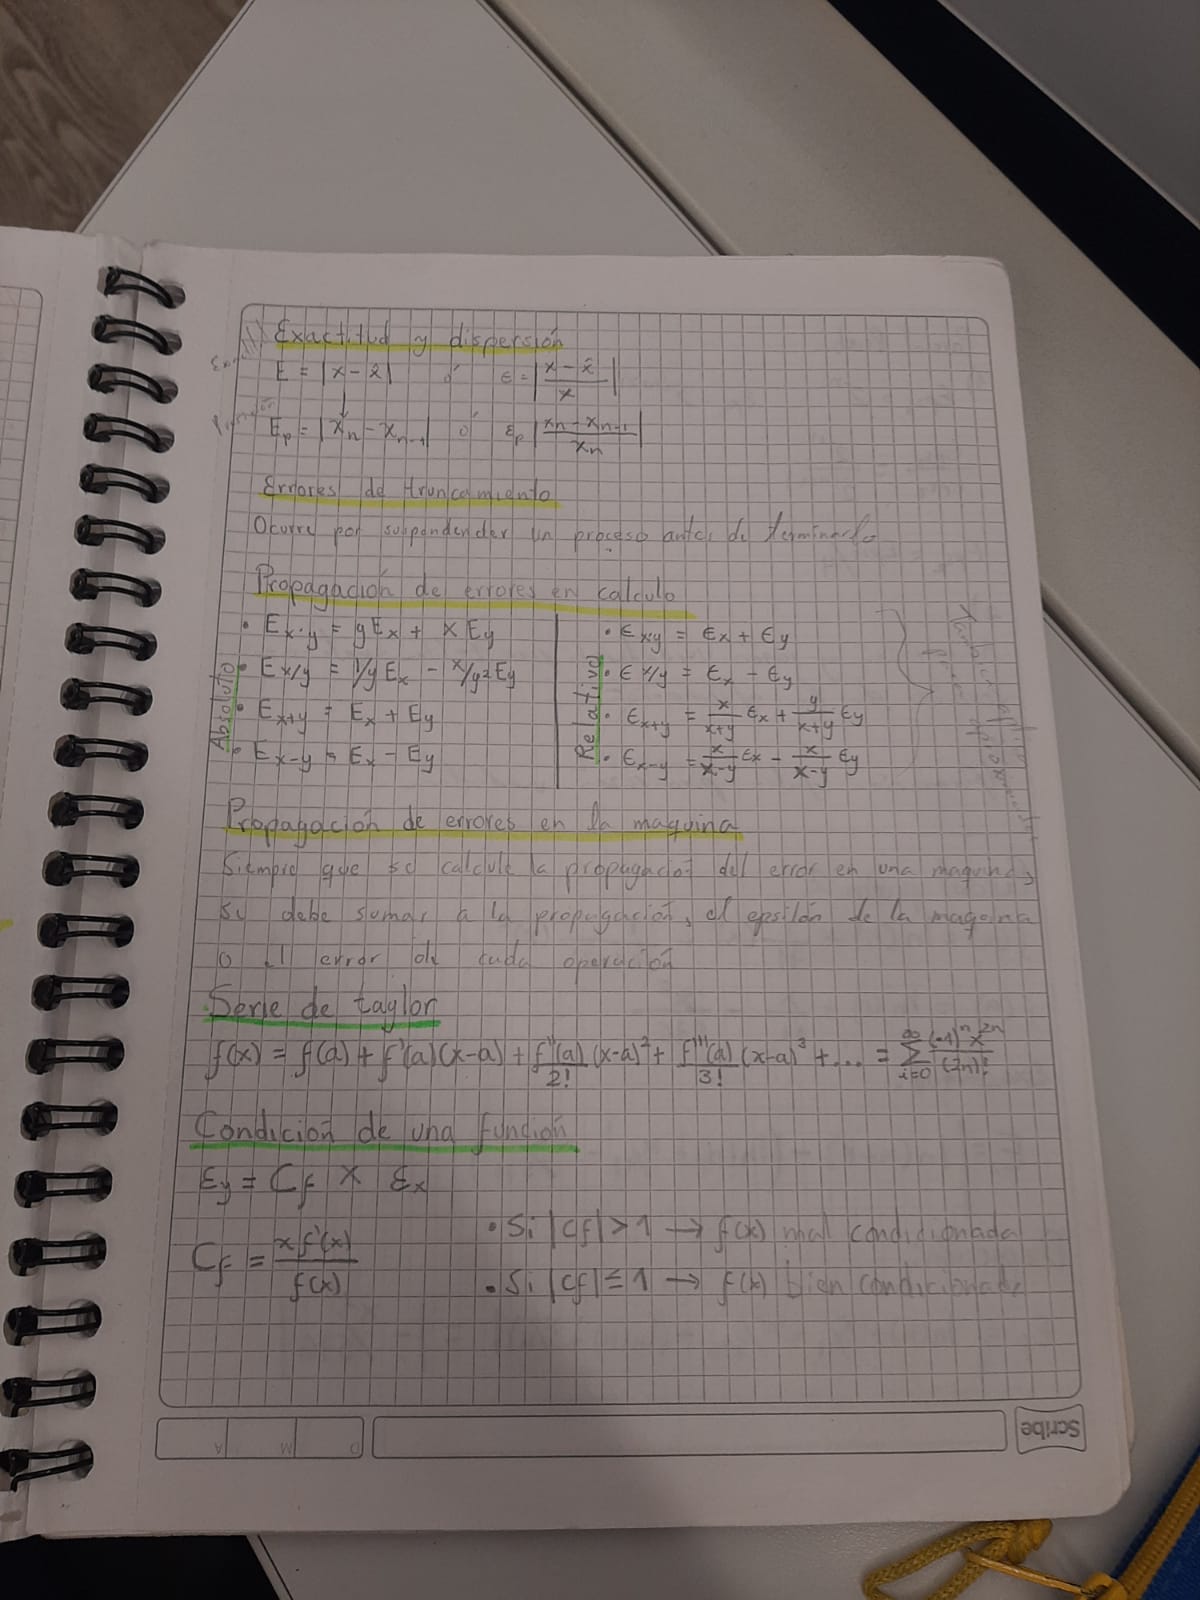 Exactitud y dispersión
E = |x - x̂| ó ϵ = |x - x̂ / x|
Ep = |xn - xn-1| ó εp |xn - xn-1 / xn|
Errores de truncamiento
Ocurre por suspendender un proceso antes de terminarlo
Propagación de errores en calculo
Absoluto
• Ex·y = yEx + xEy
• Ex/y = 1/y Ex - x/y² Ey
• Ex+y = Ex + Ey
• Ex-y = Ex - Ey
Relativo
• ϵxy = ϵx + ϵy
• ϵx/y = ϵx - ϵy
• ϵx+y = x/x+y ϵx + y/x+y ϵy
• ϵx-y = x/x-y ϵx - x/x-y ϵy
Propagación de errores en la maquina
Siempre que se calcule la propagación del error en una maquina,
se debe sumar a la propagación, el epsilón de la maquina
o el error de cada operación
Serie de taylor
f(x) = f(a) + f'(a)(x-a) + f''(a)/2! (x-a)² + f'''(a)/3! (x-a)³ + ... = ∞ Σ i=0 (-1)ⁿ x²ⁿ / (2n)!
Condición de una función
Ey = Cf X Ex
Cf = x f'(x) / f(x)
• Si |Cf| > 1 → f(x) mal condicionada
• Si |Cf| ≤ 1 → f(x) bien condicionada
D M A
Scribe